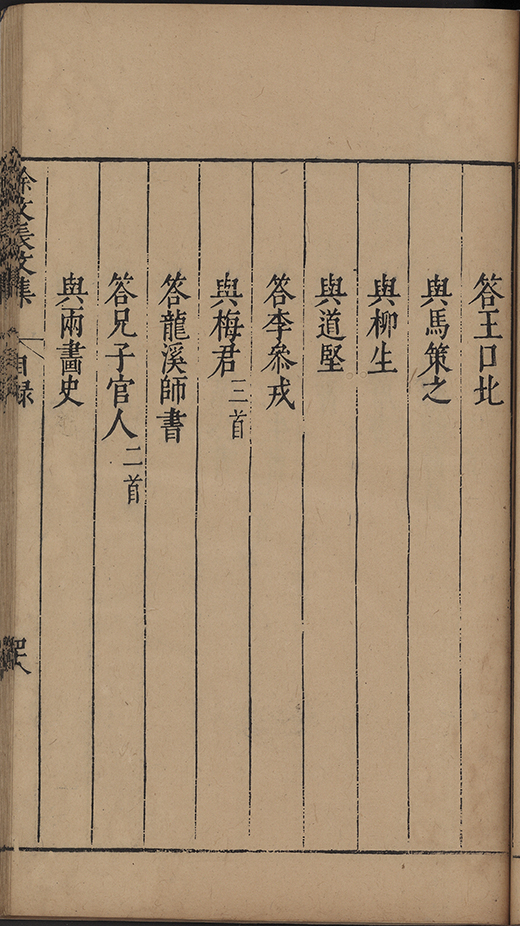 答王口北
與馬策之
與柳生
與道堅
答李叅戎
與梅君三首
答龍溪師書
答兄子官人二首
與兩畫史
徐文長文集
目錄